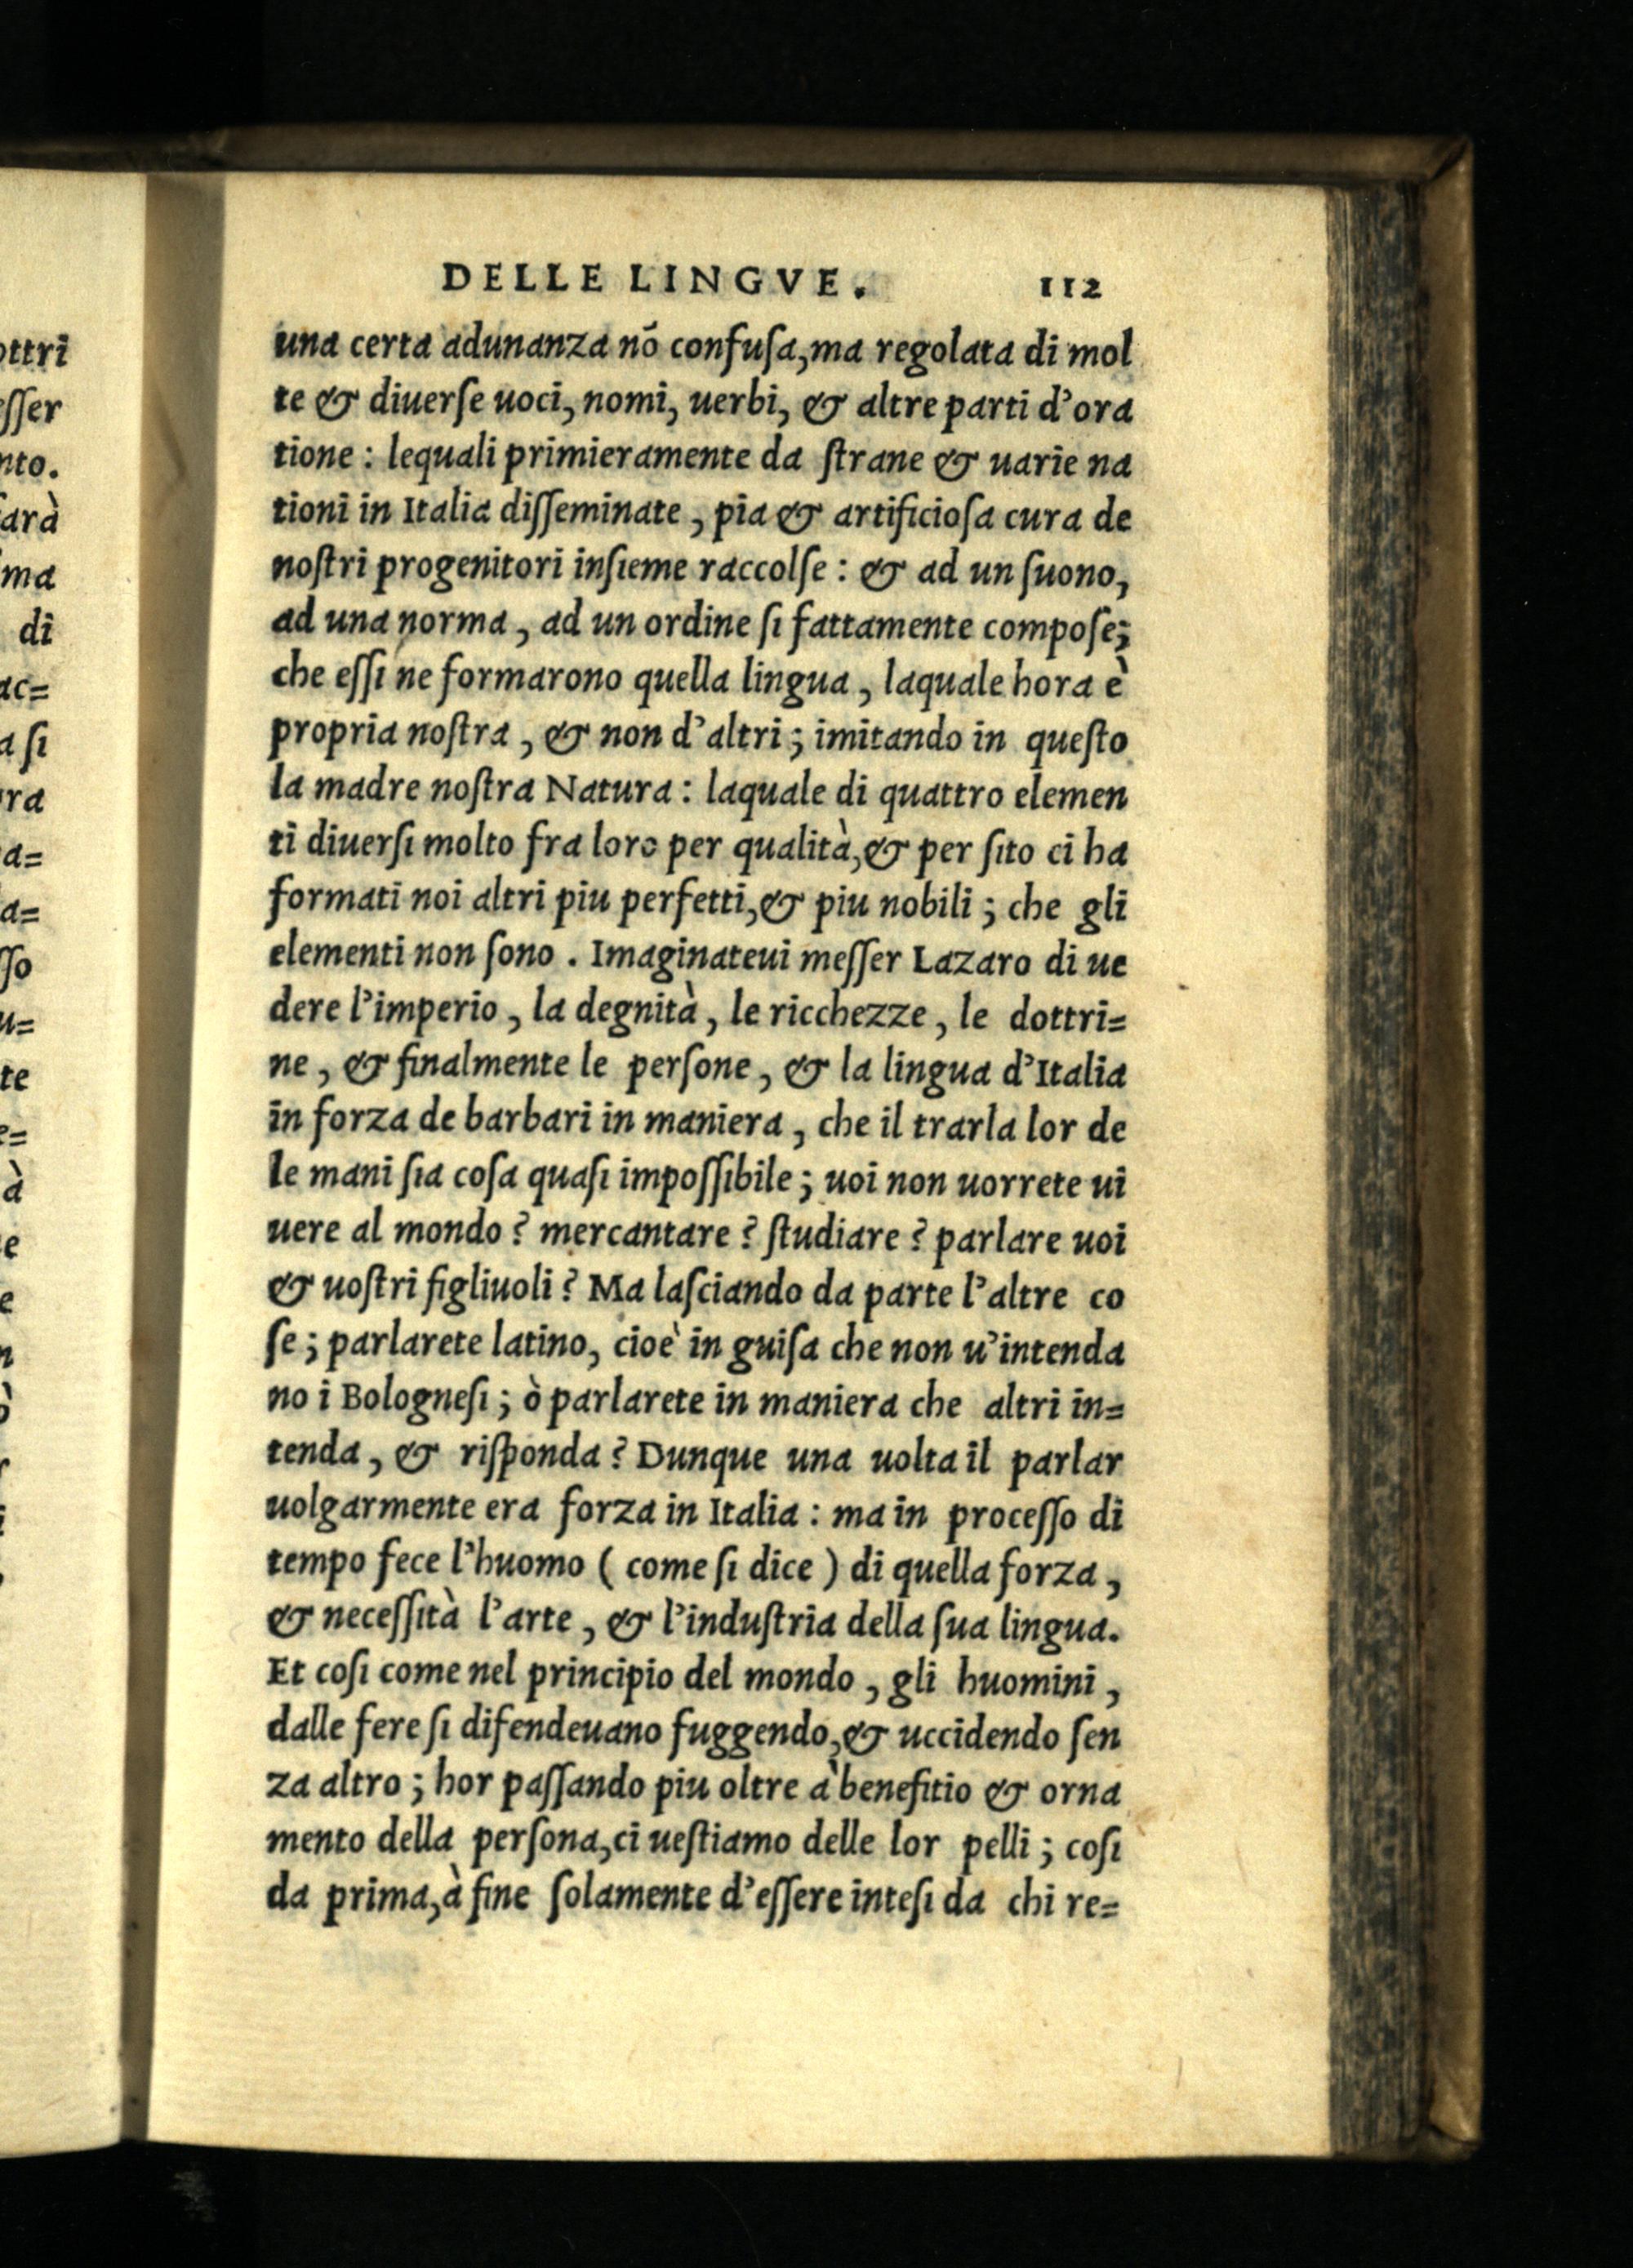 DELLE LINGVE. 112
una certa adunanza nõ confuſa, ma regolata di mol
te & diuerſe uoci, nomi, uerbi, & altre parti d'ora
tione : lequali primieramente da ſtrane & uarie na
tioni in Italia diſſeminate, pia & artificioſa cura de
noſtri progenitori inſieme raccolſe : & ad un ſuono,
ad una norma, ad un ordine ſi fattamente compoſe;
che eſſi ne formarono quella lingua, laquale hora è
propria noſtra, & non d'altri; imitando in queſto
la madre noſtra Natura : laquale di quattro elemen
ti diuerſi molto fra loro per qualità, & per ſito ci ha
formati noi altri piu perfetti, & piu nobili; che gli
elementi non ſono. Imaginateui meſſer Lazaro di ue
dere l'imperio, la degnità, le ricchezze, le dottri=
ne, & finalmente le perſone, & la lingua d'Italia
in forza de barbari in maniera, che il trarla lor de
le mani ſia coſa quaſi impoſſibile; uoi non uorrete ui
uere al mondo? mercantare? ſtudiare? parlare uoi
& uoſtri figliuoli? Ma laſciando da parte l'altre co
ſe; parlarete latino, cioè in guiſa che non u'intenda
no i Bologneſi; ò parlarete in maniera che altri in=
tenda, & riſponda? Dunque una uolta il parlar
uolgarmente era forza in Italia : ma in proceſſo di
tempo fece l'huomo (come ſi dice) di quella forza,
& neceſſità l'arte, & l'induſtria della ſua lingua.
Et coſi come nel principio del mondo, gli huomini,
dalle fere ſi difendeuano fuggendo, & uccidendo ſen
za altro; hor paſſando piu oltre à benefitio & orna
mento della perſona, ci ueſtiamo delle lor pelli; coſi
da prima, à fine ſolamente d'eſſere inteſi da chi re=